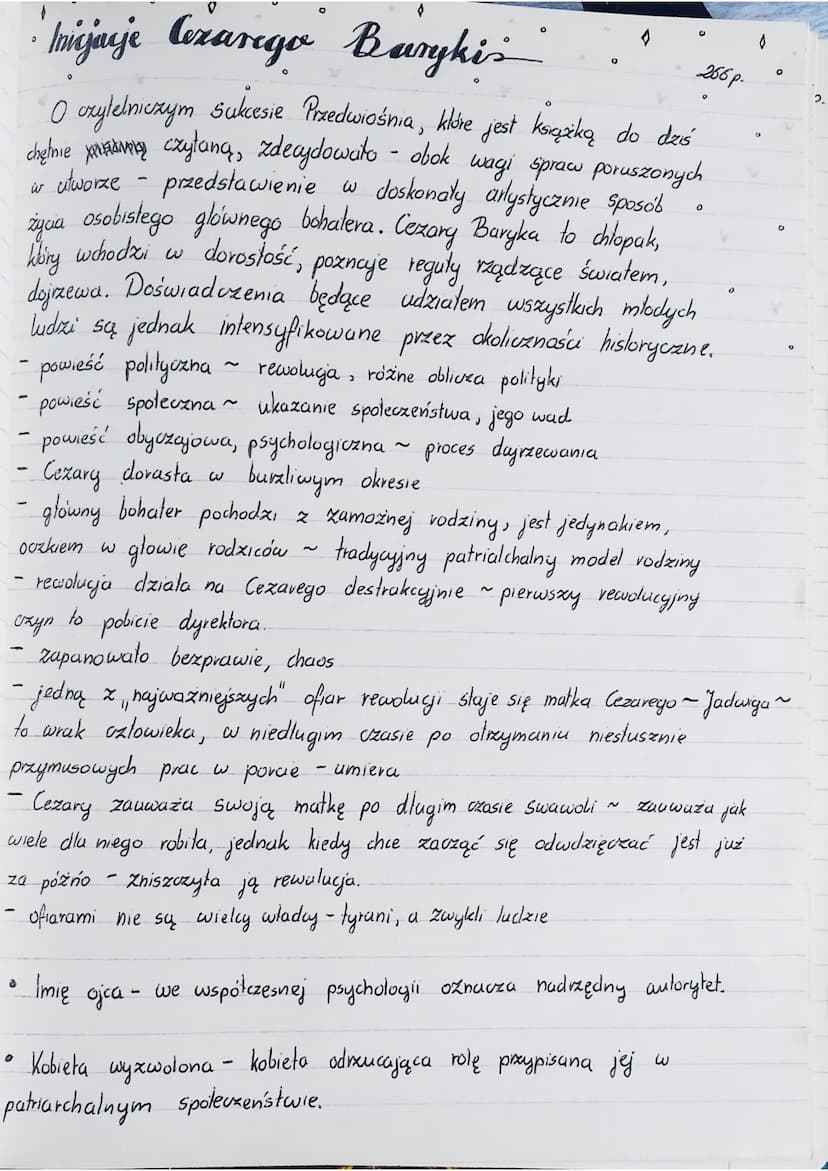 Inicjacje Cezarego Baryki
266 p.
O czytelniczym sukcesie Przedwiośnia, które jest książką do dziś
chętnie czytaną, zdecydowało - obok wagi spraw poruszonych
w utworze - przedstawienie w doskonały artystycznie sposób
życia osobistego głównego bohatera. Cezary Baryka to chłopak,
który wchodzi w dorosłość, poznaje reguły rządzące światem,
dojrzewa. Doświadczenia będące udziałem wszystkich młodych
ludzi są jednak intensyfikowane przez okoliczności historyczne.
- powieść polityczna ~ rewolucja, różne oblicza polityki
- powieść społeczna ~ ukazanie społeczeństwa, jego wad
- powieść obyczajowa, psychologiczna ~ proces dojrzewania
- Cezary dorasta w burzliwym okresie
- główny bohater pochodzi z zamożnej rodziny, jest jedynakiem,
oczkiem w głowie rodziców ~ tradycyjny patrialchalny model rodziny
- rewolucja działa na Cezarego destrakcyjnie ~ pierwszy rewolucyjny
czyn to pobicie dyrektora.
- zapanowało bezprawie, chaos
- jedną z „najważniejszych" ofiar rewolucji staje się matka Cezarego ~ Jadwiga ~
to wrak człowieka, w niedługim czasie po otrzymaniu niesłusznie
przymusowych prac w porcie - umiera
- Cezary zauważa swoją matkę po długim czasie swawoli ~ zauważa jak
wiele dla niego robiła, jednak kiedy chce zacząć się odwdzięczać jest już
za późno - zniszczyła ją rewolucja.
- ofiarami nie są wielcy władcy - tyrani, a zwykli ludzie
• Imię ojca - we współczesnej psychologii oznacza nadrzędny autorytet.
• Kobieta wyzwolona - kobieta odrzucająca rolę przypisaną jej w
patriarchalnym społeczeństwie.